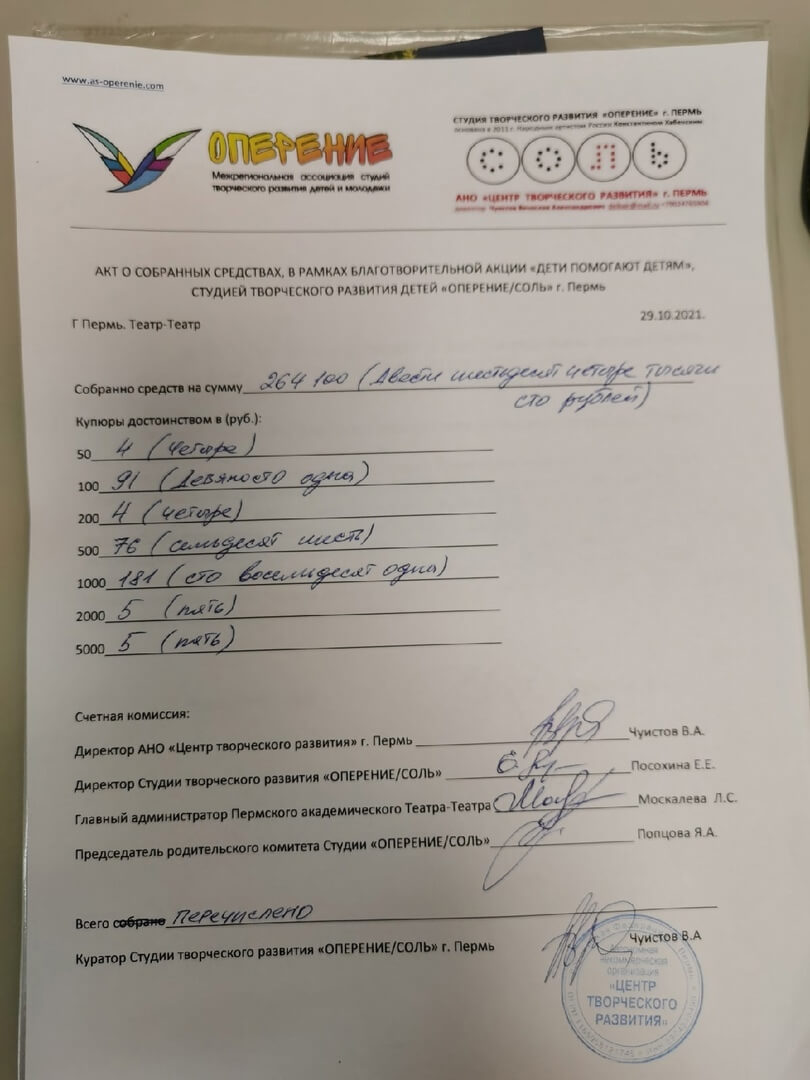 www.as-operenie.com
ОПЕРЕНИЕ
Межрегиональная ассоциация студий
творческого развития детей и молодежи
СТУДИЯ ТВОРЧЕСКОГО РАЗВИТИЯ «ОПЕРЕНИЕ» г. ПЕРМЬ
основана в 2011 г. Народным артистом России Константином Хабенским
СОЛЬ
АНО «ЦЕНТР ТВОРЧЕСКОГО РАЗВИТИЯ» г. ПЕРМЬ
директор Чуистов Вячеслав Александрович
АКТ О СОБРАННЫХ СРЕДСТВАХ, В РАМКАХ БЛАГОТВОРИТЕЛЬНОЙ АКЦИИ «ДЕТИ ПОМОГАЮТ ДЕТЯМ»,
СТУДИЕЙ ТВОРЧЕСКОГО РАЗВИТИЯ ДЕТЕЙ «ОПЕРЕНИЕ/СОЛЬ» г. Пермь
Г Пермь. Театр-Театр 29.10.2021.
Собранно средств на сумму 264 100 (Двести шестьдесят четыре тысячи
сто рублей)
Купюры достоинством в (руб.):
50 4 (четыре)
100 91 (Девяносто одна)
200 4 (четыре)
500 76 (семьдесят шесть)
1000 181 (сто восемьдесят одна)
2000 5 (пять)
5000 5 (пять)
Счетная комиссия:
Директор АНО «Центр творческого развития» г. Пермь Чуистов В.А.
Директор Студии творческого развития «ОПЕРЕНИЕ/СОЛЬ» Посохина Е.Е.
Главный администратор Пермского академического Театра-Театра Москалева Л.С.
Председатель родительского комитета Студии «ОПЕРЕНИЕ/СОЛЬ» Попцова Я.А.
Всего собрано перечислено
Куратор Студии творческого развития «ОПЕРЕНИЕ/СОЛЬ» г. Пермь Чуистов В.А
Автономная
некоммерческая
организация
«ЦЕНТР
ТВОРЧЕСКОГО
РАЗВИТИЯ»